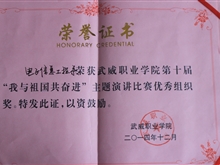 荣誉证书
HONORARY CREDENTIAL
电子信息工程系荣获武威职业学院第十届
“我与祖国共奋进”主题演讲比赛优秀组织
奖。特发此证，以资鼓励。
武威职业学院
二〇一四年十二月